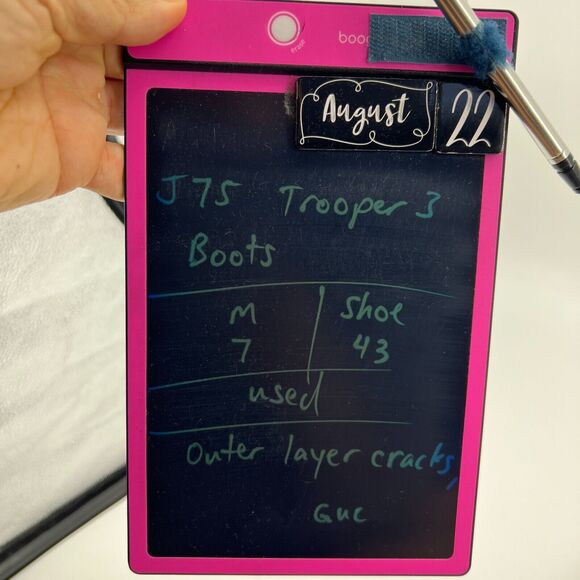 boo
Erase
August 22
J75 Trooper 3
Boots
M | Shoe
7 | 43
used
Outer layer cracks,
GUC